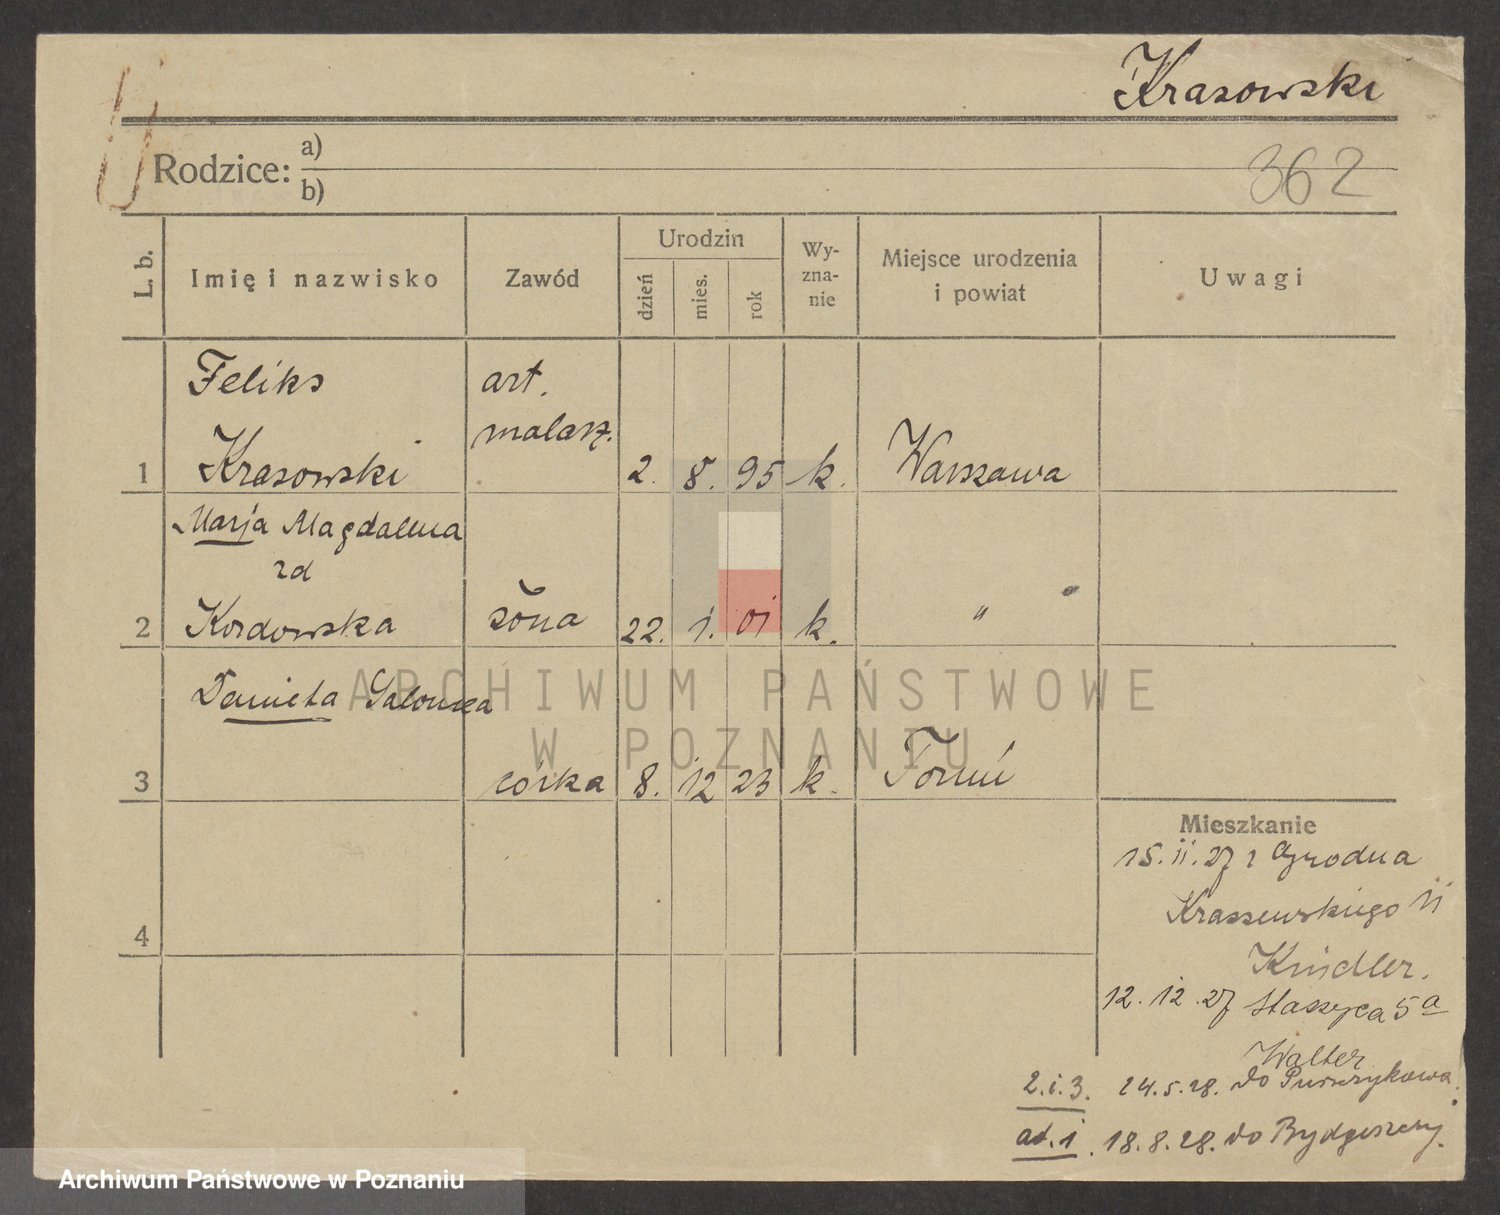 Krasowski
Rodzice: a)
b)
362
L. b.
Imię i nazwisko
Zawód
Urodzin
dzień
mies.
rok
Wy-
zna-
nie
Miejsce urodzenia
i powiat
Uwagi
Feliks art.
malarz.
1 Krasowski 2. 8. 95 k. Warszawa
Marja Magdalena
zd
2 Kordowska żona 22. 1. 01 k. "
Daniela Salomea
3 córka 8. 12 23 k. Toruń
ARCHIWUM PAŃSTWOWE
W POZNANIU
4
Mieszkanie
15. 11. 27 z Grodna
Kraszewskiego 11
Kindler.
12. 12. 27 Staszyca 5a
Walter
2.i.3. 24.5.28. do Puszczykowa.
ad. 1. 18.8.28. do Bydgoszczy.
Archiwum Państwowe w Poznaniu